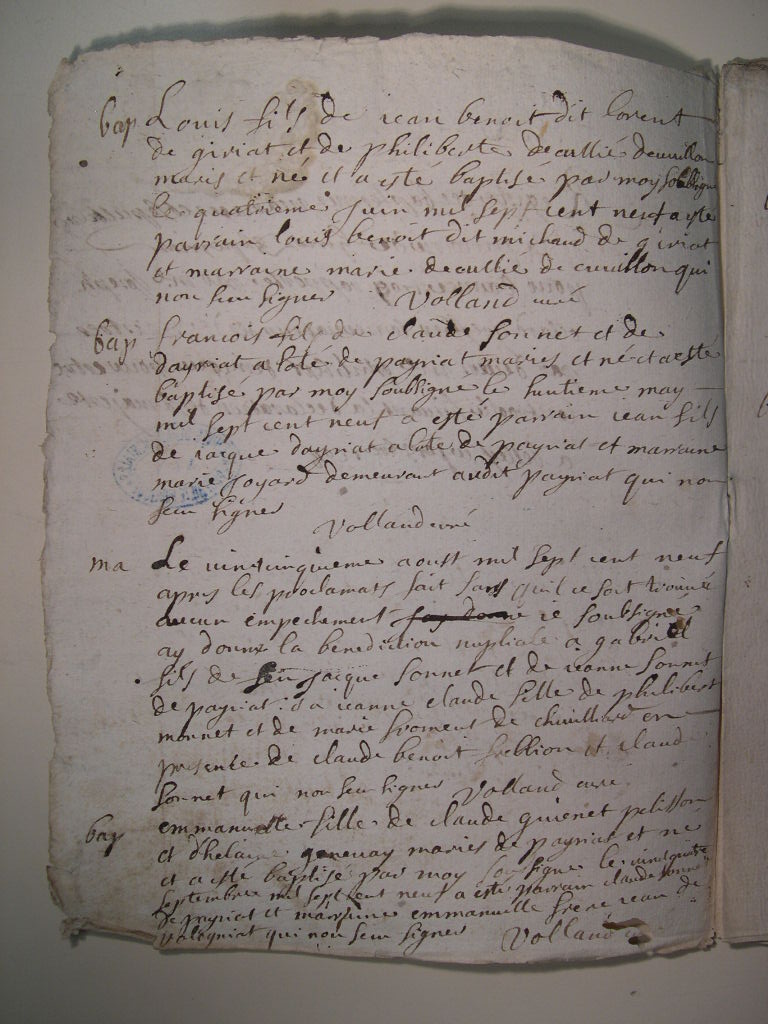 bap Louis fils de iean benoit dit lorent
de giriat et de philiberte decullié decuvillon
maris et né et a este baptisé par moy soubsigne
le quatrieme Juin mil sept cent neuf a este
parrain louis benoit dit michaud de giriat
et marraine marie decullié de cuvillon qui
non seu signer Volland curé
bap francois fils de claude sonnet et de
dayriat a lote de payriat maries et né et a esté
baptisé par moy soubsigne le huitieme may
mil sept cent neuf a esté parrain iean fils
de iacque dayriat a lote de payriat et marraine
marie Joyard demeurant audit payriat qui non
seu signer Volland curé
ma Le vincinquieme aoust mil sept cent neuf
apres les proclamats fait sans quil ce soit trouvé
aucun empechement ie soubsigne
ay donné la benediction nuptiale a gabriel
fils de feu Jacque sonnet et de ieanne sonnet
de payriat et a ieanne claude fille de philibert
monnet et de marie froment de chivillard en
presence de claude benoit et claude
sonnet qui non seu signer Volland curé
bap emmanuelle fille de claude guienet pelisson
et dhelaine genevay maries de payriat et ne
et a este baptisé par moy soussigne le vint quatre
septembre mil sept cent neuf a esté parrain claude sonnet
de payriat et marraine emmanuelle frere iean de
qui non seu signer Volland